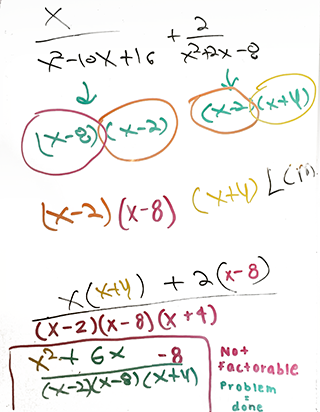 x/(x²-10x+16) + 2/(x²+2x-8)
(x-8)(x-2) (x-2)(x+4)
(x-2)(x-8) (x+4)
x(x+4) + 2(x-8)
(x-2)(x-8)(x+4)
x²+ 6x -8
(x-2)(x-8)(x+4)
Not
factorable
Problem
=
done